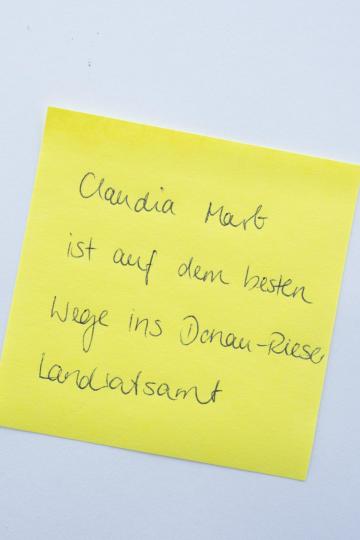 Claudia Marb
ist auf dem besten
Wege ins Donau-Rieser
Landratsamt